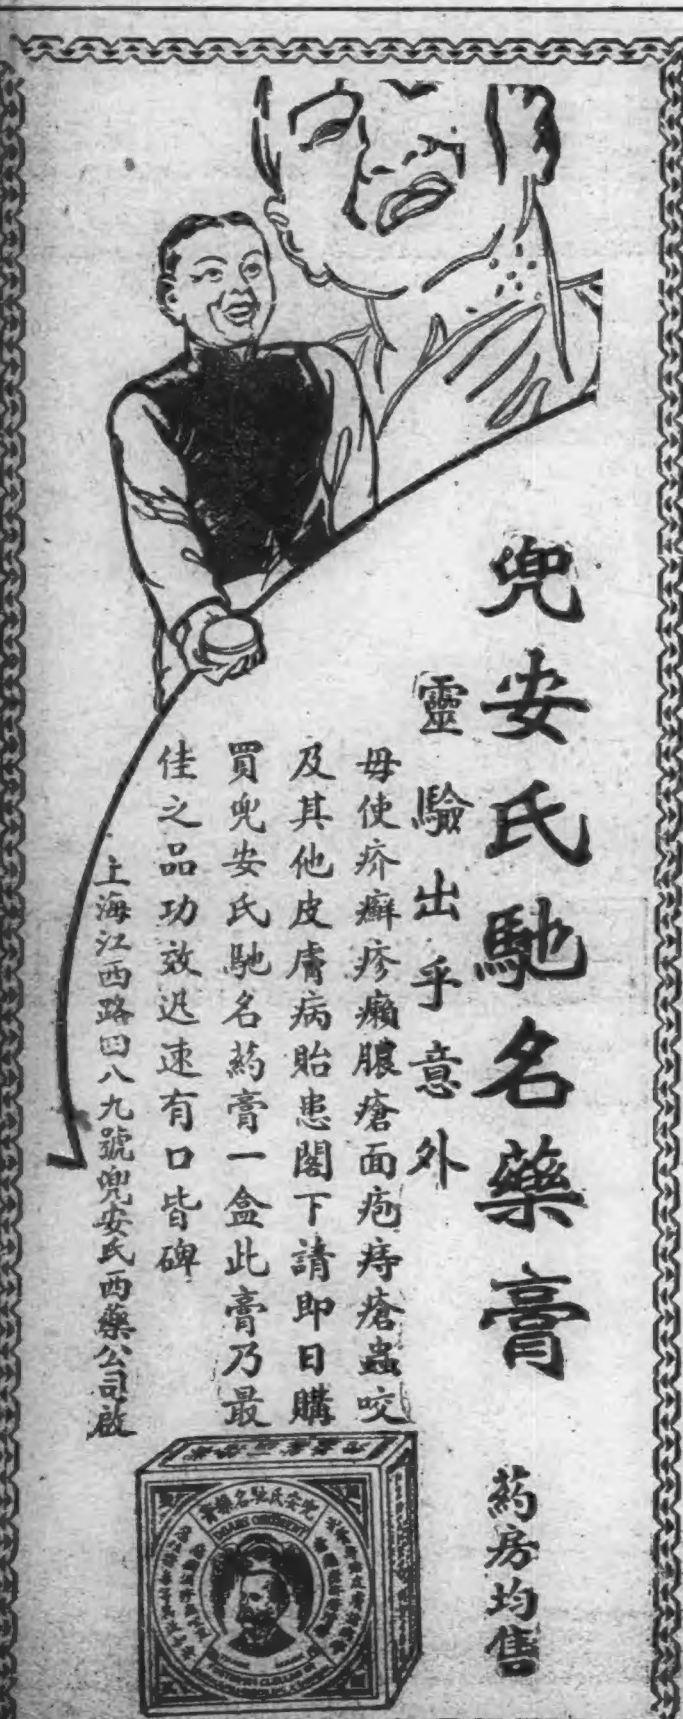 兜安氏馳名藥膏
藥房均售
靈驗出乎意外
毋使疥癬疹癩膿瘡面疱痔瘡蟲咬
及其他皮膚病貽患閣下請即日購
買兜安氏馳名葯膏一盒此膏乃最
佳之品功效迅速有口皆碑
上海江西路四八九號兜安氏西藥公司啟
兜安氏馳名藥膏
DOAN'S OINTMENT